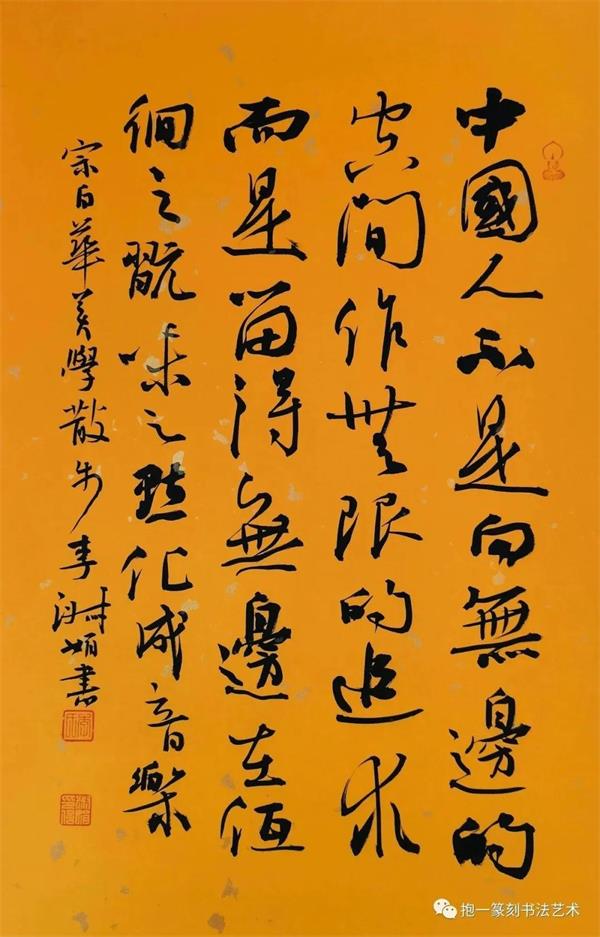 中國人不是向無邊的
空間作無限的追求
而是留得無邊在低
徊之翫味之點化成音樂
宗白華美學散步李書
抱一篆刻书法艺术